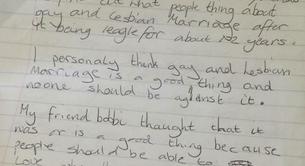 what people thing about
gay and Lesbian Marriage after
it being leagle for about years.
I personaly think gay and Lesbian
Marriage is a good thing and
noone should be against it.
My friend thought that it
was or is a good thing because
people should be able to
Love